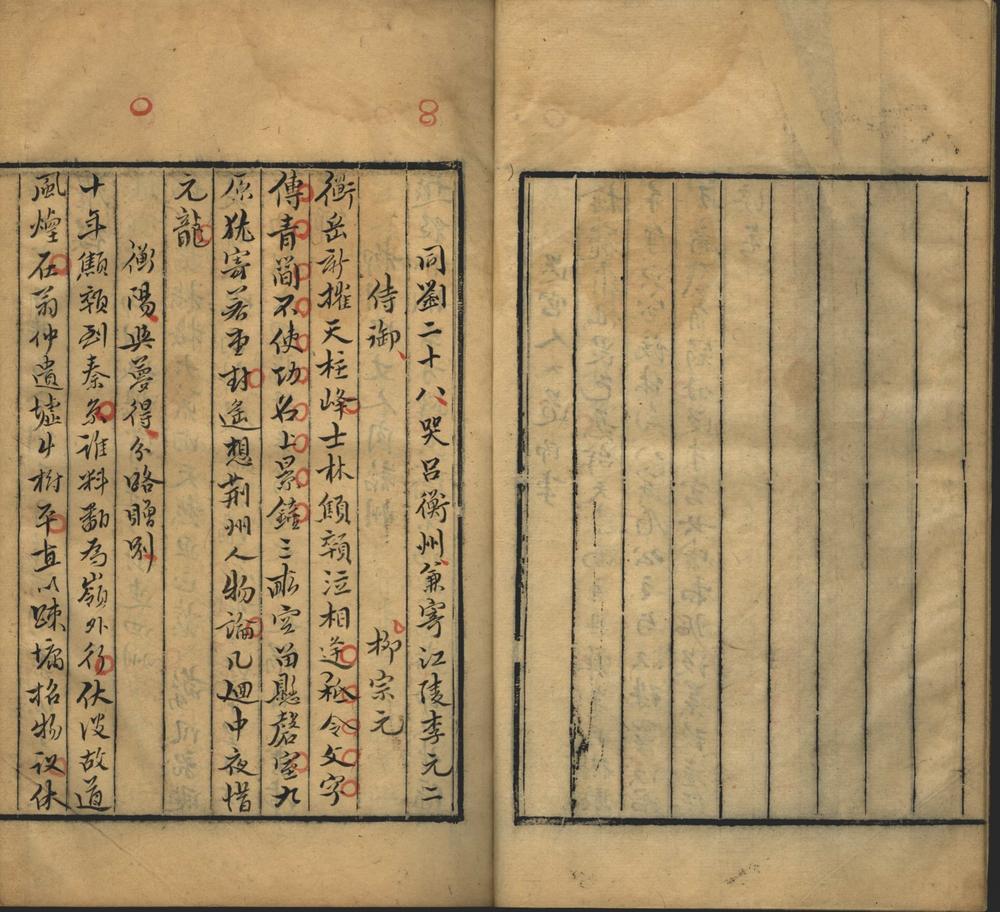 同劉二十八哭呂衡州兼寄江陵李元二
侍御　柳宗元
衡岳新摧天柱峰士林顦顇泣相逢秪令文字
傳青簡不使功名上景鐘三畝空留懸磬室九
原犹寄若堂封遥想荆州人物論几廻中夜惜
元龍
衡陽與夢得分路贈別
十年顦顇到秦京谁料翻為嶺外行伏波故道
風煙在翁仲遺墟草樹平直以踈慵招物议休